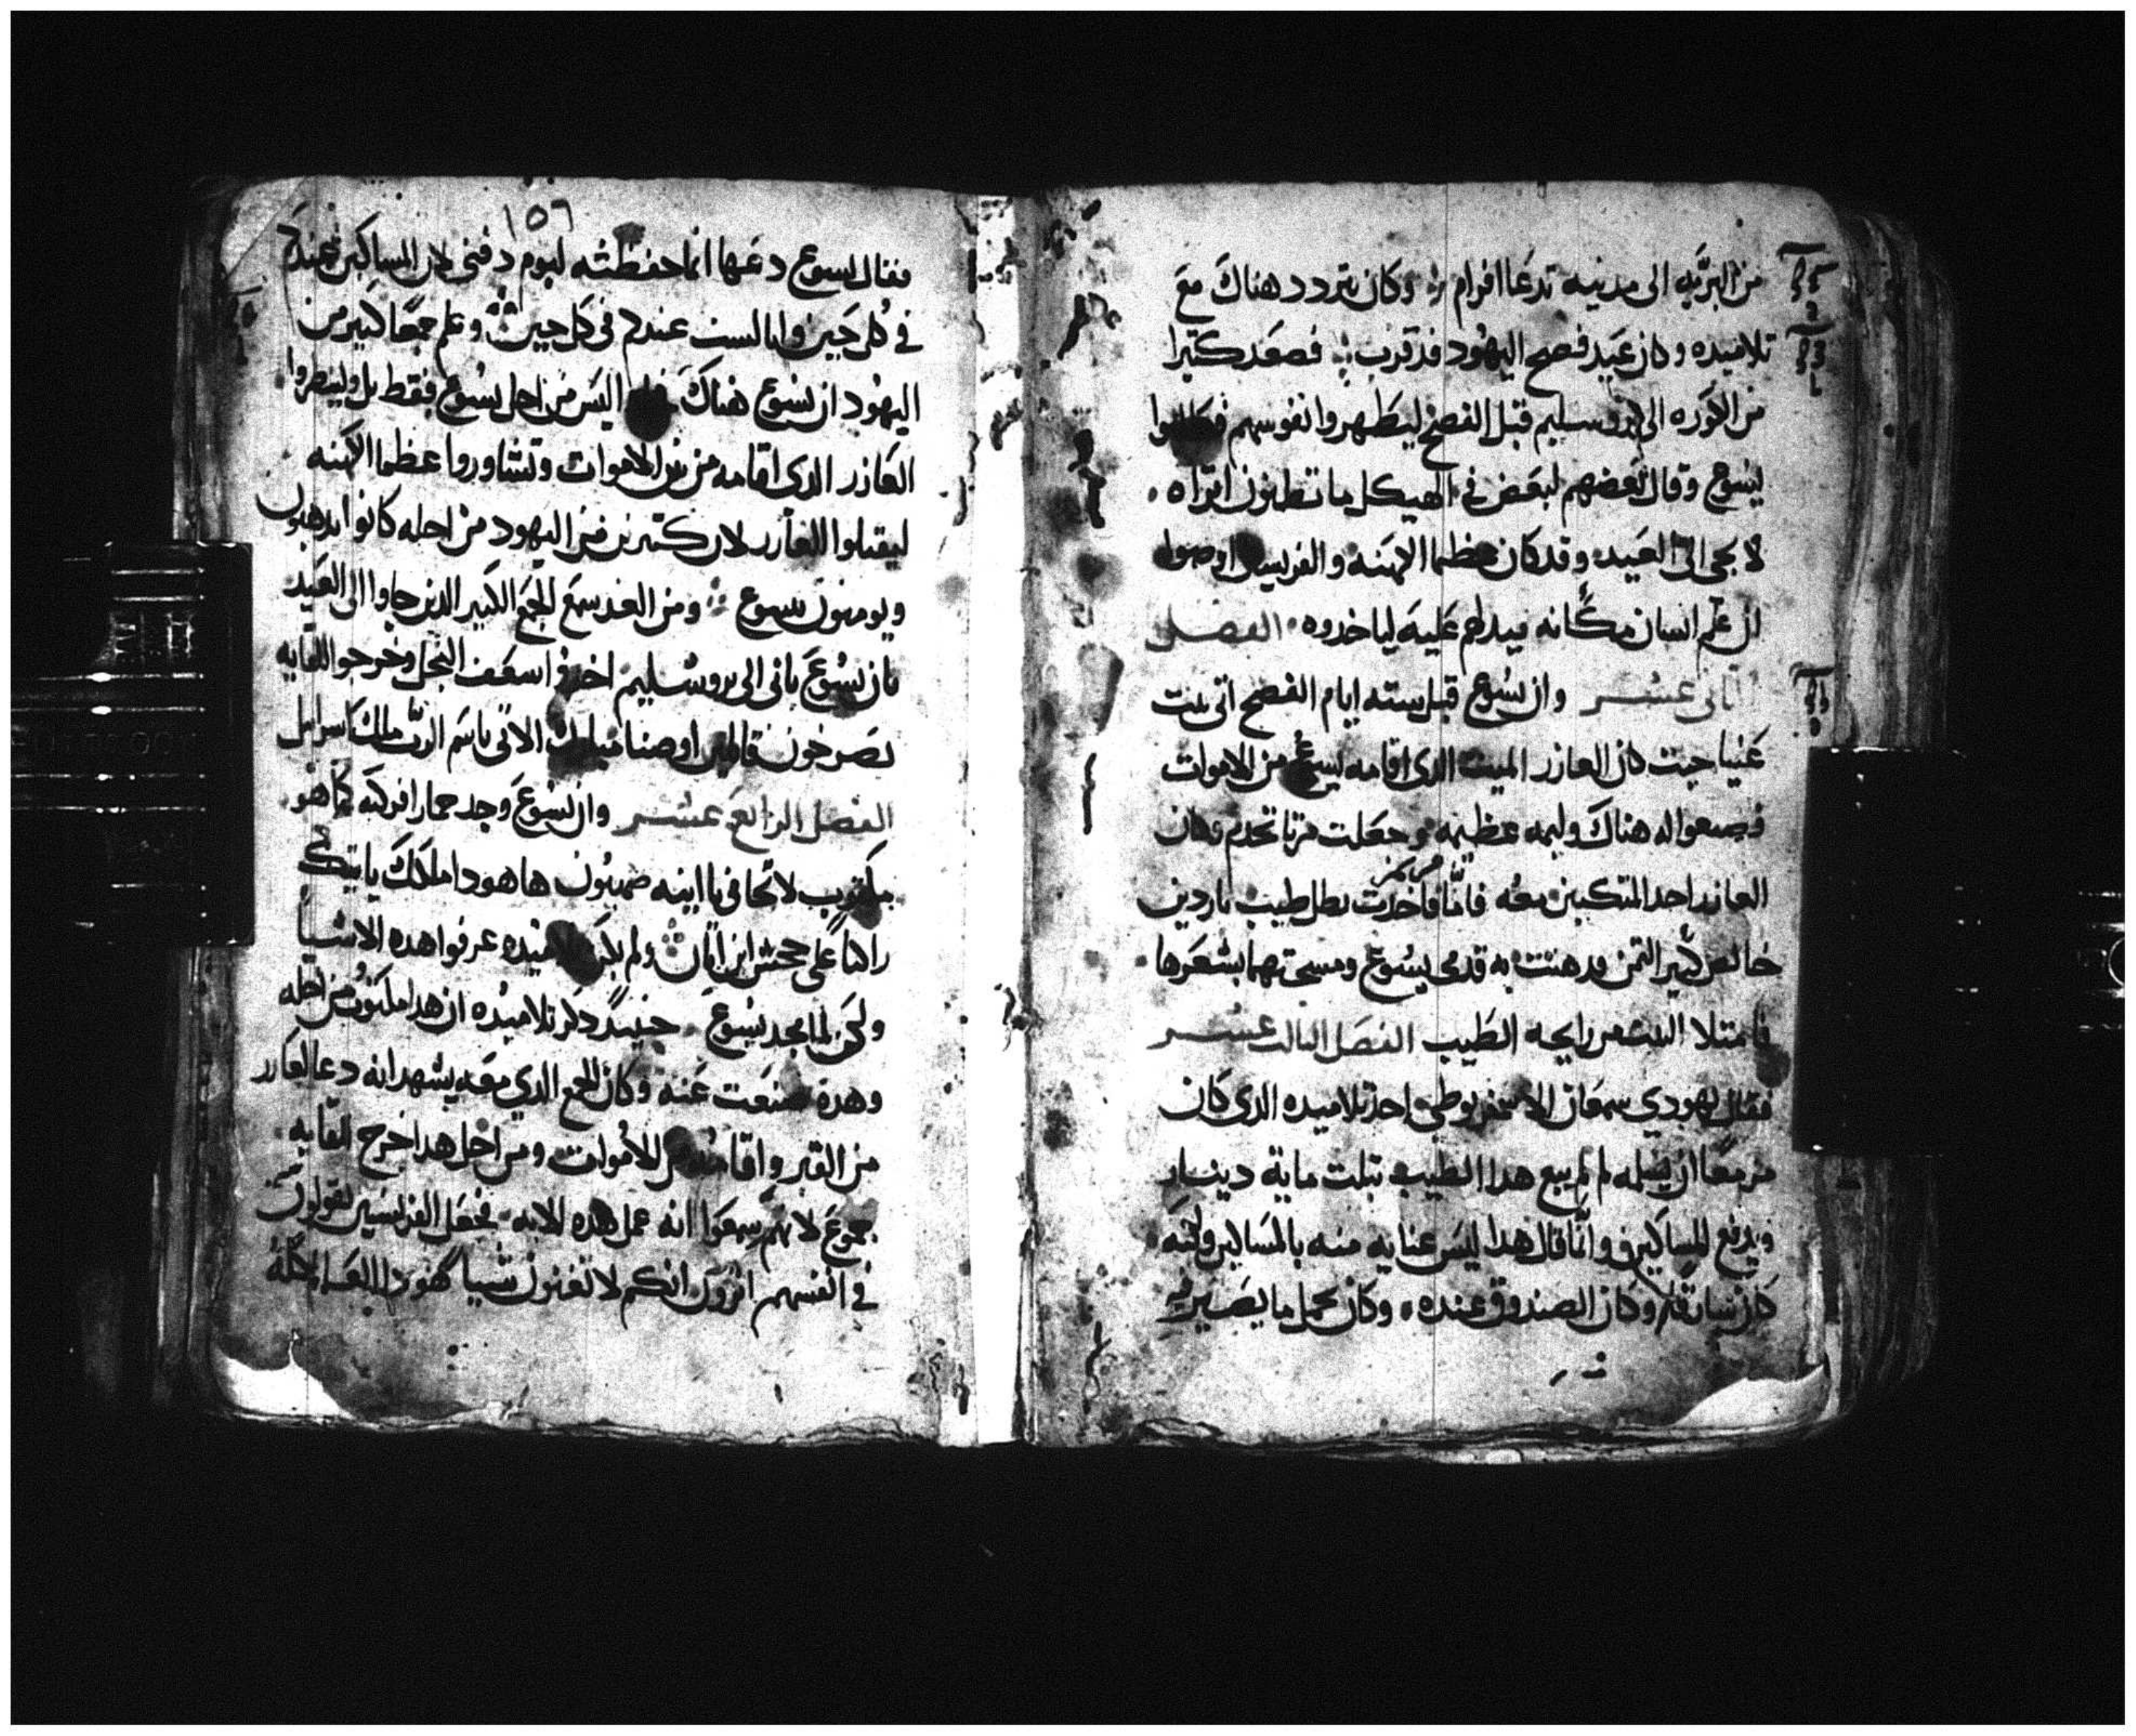 من البرّيه الى مدينه تدعا افرام وكان يتردد هناك مع
تلاميده وكان عيد فصح اليهود قد قرب فصعد كتيرا
من الكوره الى يروسليم قبل الفصح ليطهروا نفوسهم فطلبوا
ليسوع وقال بعضهم لبعض في الهيكل ما تظنون اتراه
لا يجي الى العيد وقد كان عظما الكهنه والفريسيين اوصوا
ان علم انسان مكانه فيدلهم عليه لياخدوه الفصل
التانى عشر وان يسوع قبل سته ايام الفصح اتى بيت
عنيا حيت كان العازر الميت الدى اقامه يسوع من الاموات
فصنعوا له هناك وليمه عظيمه وجعلت مرتا تخدم وكان
العازر احد المتكيين معه فاما مريم فاخدت رطل طيب ناردين
خالص كتير التمن ودهنت به قدمى يسوع ومسحتهما بشعرها
فامتلا البيت من رايحه الطيب الفصل التالت عشر
فقال يهودي سمعان الاسخريوطي احد تلاميده الدى كان
مزمعا ان يسلمه لم لم يبع هدا الطيب بتلت ماية دينار
ويدفع للمساكين وانما قال هدا ليس عنايه منه بالمساكين ولكنه
كان سارقا وكان الصندوق عنده وكان يحمل ما يصير فيه
١٥٦
فقال يسوع دعها انما حفظته ليوم دفنى لان المساكين عندكم
في كل حين وانا لست عندكم في كل حين وعلم جمعا كبير من
اليهود ان يسوع هناك ليس من اجل يسوع فقط بل ولينظروا
العازر الدى اقامه من بين الاموات وتشاوروا عظما الكهنه
ليقتلوا العازر لان كتيرين من اليهود من اجله كانوا يدهبون
ويومنون بيسوع ومن الغد سمع الجمع الكبير الدين جاوا الى العيد
بان يسوع ياتى الى يروشليم اخدوا سعف النخل وخرجوا للقايه
يصرخون قايلين اوصنا مبارك الاتى باسم الربّ ملك اسراييل
الفصل الرابع عشر وان يسوع وجد حمارا فركبه كما هو
مكتوب لا تخافى يا ابنه صهيون هاهودا ملكك ياتيكي
راكبا على جحش ابن اتان ولم يكن تلاميده عرفوا هده الاشيا
ولكن لما مجد يسوع حينيد دكر تلاميده ان هدا مكتوب من اجله
وهده صنعت عنه وكان الجمع الدي معه يشهد انه دعا العازر
من القبر واقامه من الاموات ومن اجل هدا خرج للقايه
جموع لانهم سمعوا انه عمل هده الايه فجعل الفريسيين يقولون
في انفسهم اترون انكم لا تغنون شيا هودا العالم كله